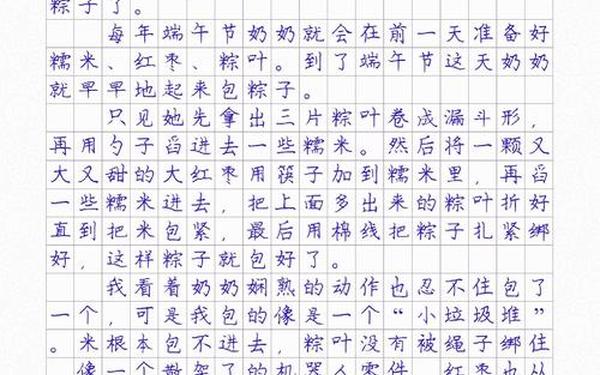 粽子了。
每年端午节奶奶就会在前一天准备好
糯米、红枣、粽叶。到了端午节这天奶奶
就早早地起来包粽子。
只见她先拿出三片粽叶卷成漏斗形，
再用勺子舀进去一些糯米。然后将一颗又
大又甜的大红枣用筷子加到糯米里，再舀
一些糯米进去，把上面多出来的粽叶折好
直到把米包紧，最后用棉线把粽子扎紧绑
好，这样粽子就包好了。
我看着奶奶娴熟的动作也忍不住包了
一个，可是我包的像是一个“小垃圾堆”
。米根本包不进去，粽叶没有被绳子绑住
像一个散架了的机器人零件，红枣也从